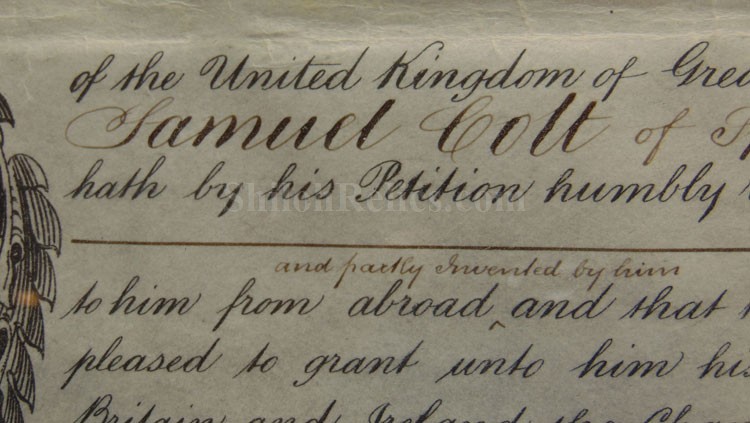 of the United Kingdom of Grea
Samuel Colt of Sp
hath by his Petition humbly
and partly Invented by him
to him from abroad ‸ and that
pleased to grant unto him his
Britain and Ireland the Cha